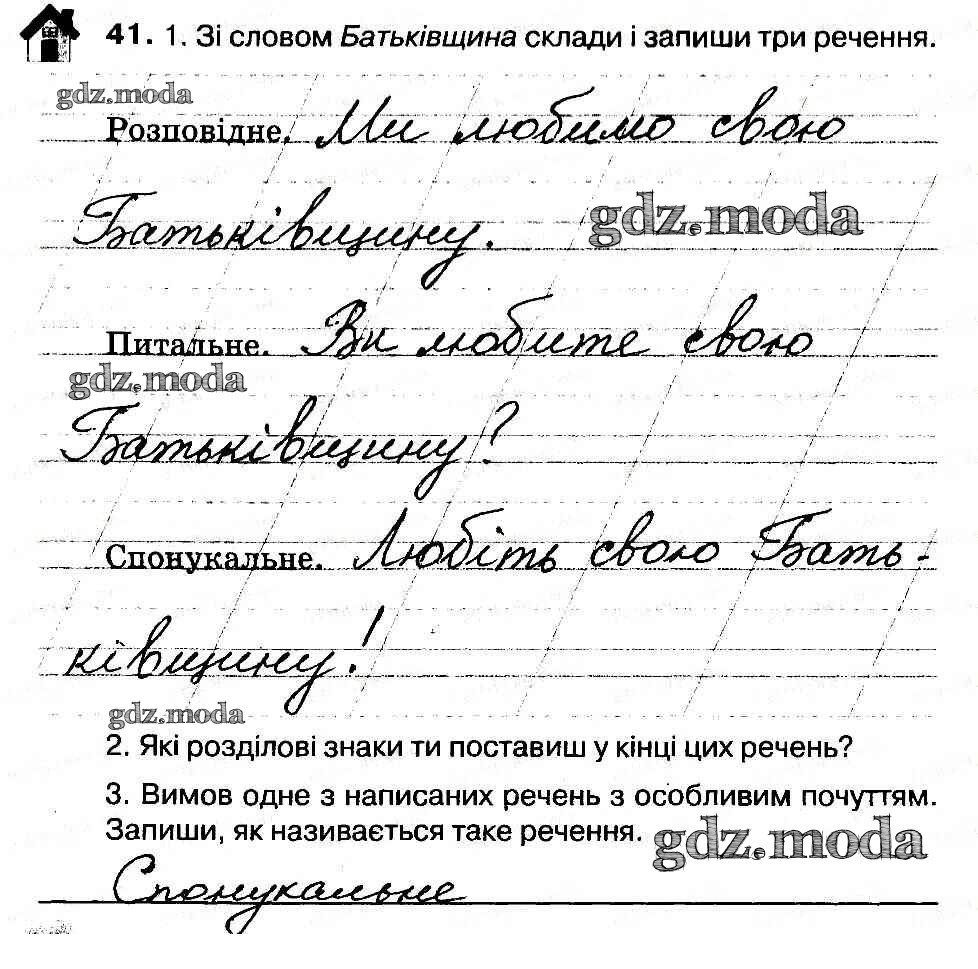 41. 1. Зі словом Батьківщина склади і запиши три речення.
gdz.moda
Розповідне. Ми любимо свою
Батьківщину. gdz.moda
Питальне. Ви любите свою
gdz.moda
Батьківщину?
Спонукальне. Любіть свою Бать-
ківщину!
gdz.moda
2. Які розділові знаки ти поставиш у кінці цих речень?
3. Вимов одне з написаних речень з особливим почуттям.
Запиши, як називається таке речення. gdz.moda
Спонукальне